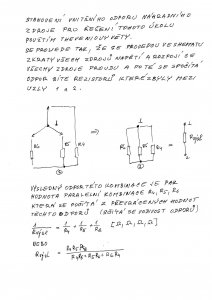 STANOVENÍ VNITŘNÍHO ODPORU NÁHRADNÍHO
ZDROJE PRO ŘEŠENÍ TOHOTO ÚKOLU
POUŽITÍM THEVENINOVY VĚTY.
SE PROVEDE TAK, ŽE SE PROVEDOU VE SCHEMATU
ZKRATY VŠECH ZDROJŮ NAPĚTÍ A ROZPOJÍ SE
VŠECHNY ZDROJE PROUDU A POTÉ SE SPOČÍTÁ
ODPOR SÍTĚ REZISTORŮ KTERÉ ZBYLY MEZI
UZLY 1 a 2.
1
R4 R5 R6
2
⇒
1
R4 R5 R6
2
=
1
Rvýsl
2
VÝSLEDNÝ ODPOR TÉTO KOMBINACE JE PAK
HODNOTA PARALELNÍ KOMBINACE R4, R5, R6
KTERÁ SE POČÍTÁ Z PŘEVRÁCENÝCH HODNOT
TĚCHTO ODPORŮ (SČÍTÁ SE VODIVOST ODPORŮ)
1/Rvýsl = 1/R4 + 1/R5 + 1/R6 [Ω, Ω, Ω, Ω]
NEBO
Rvýsl =